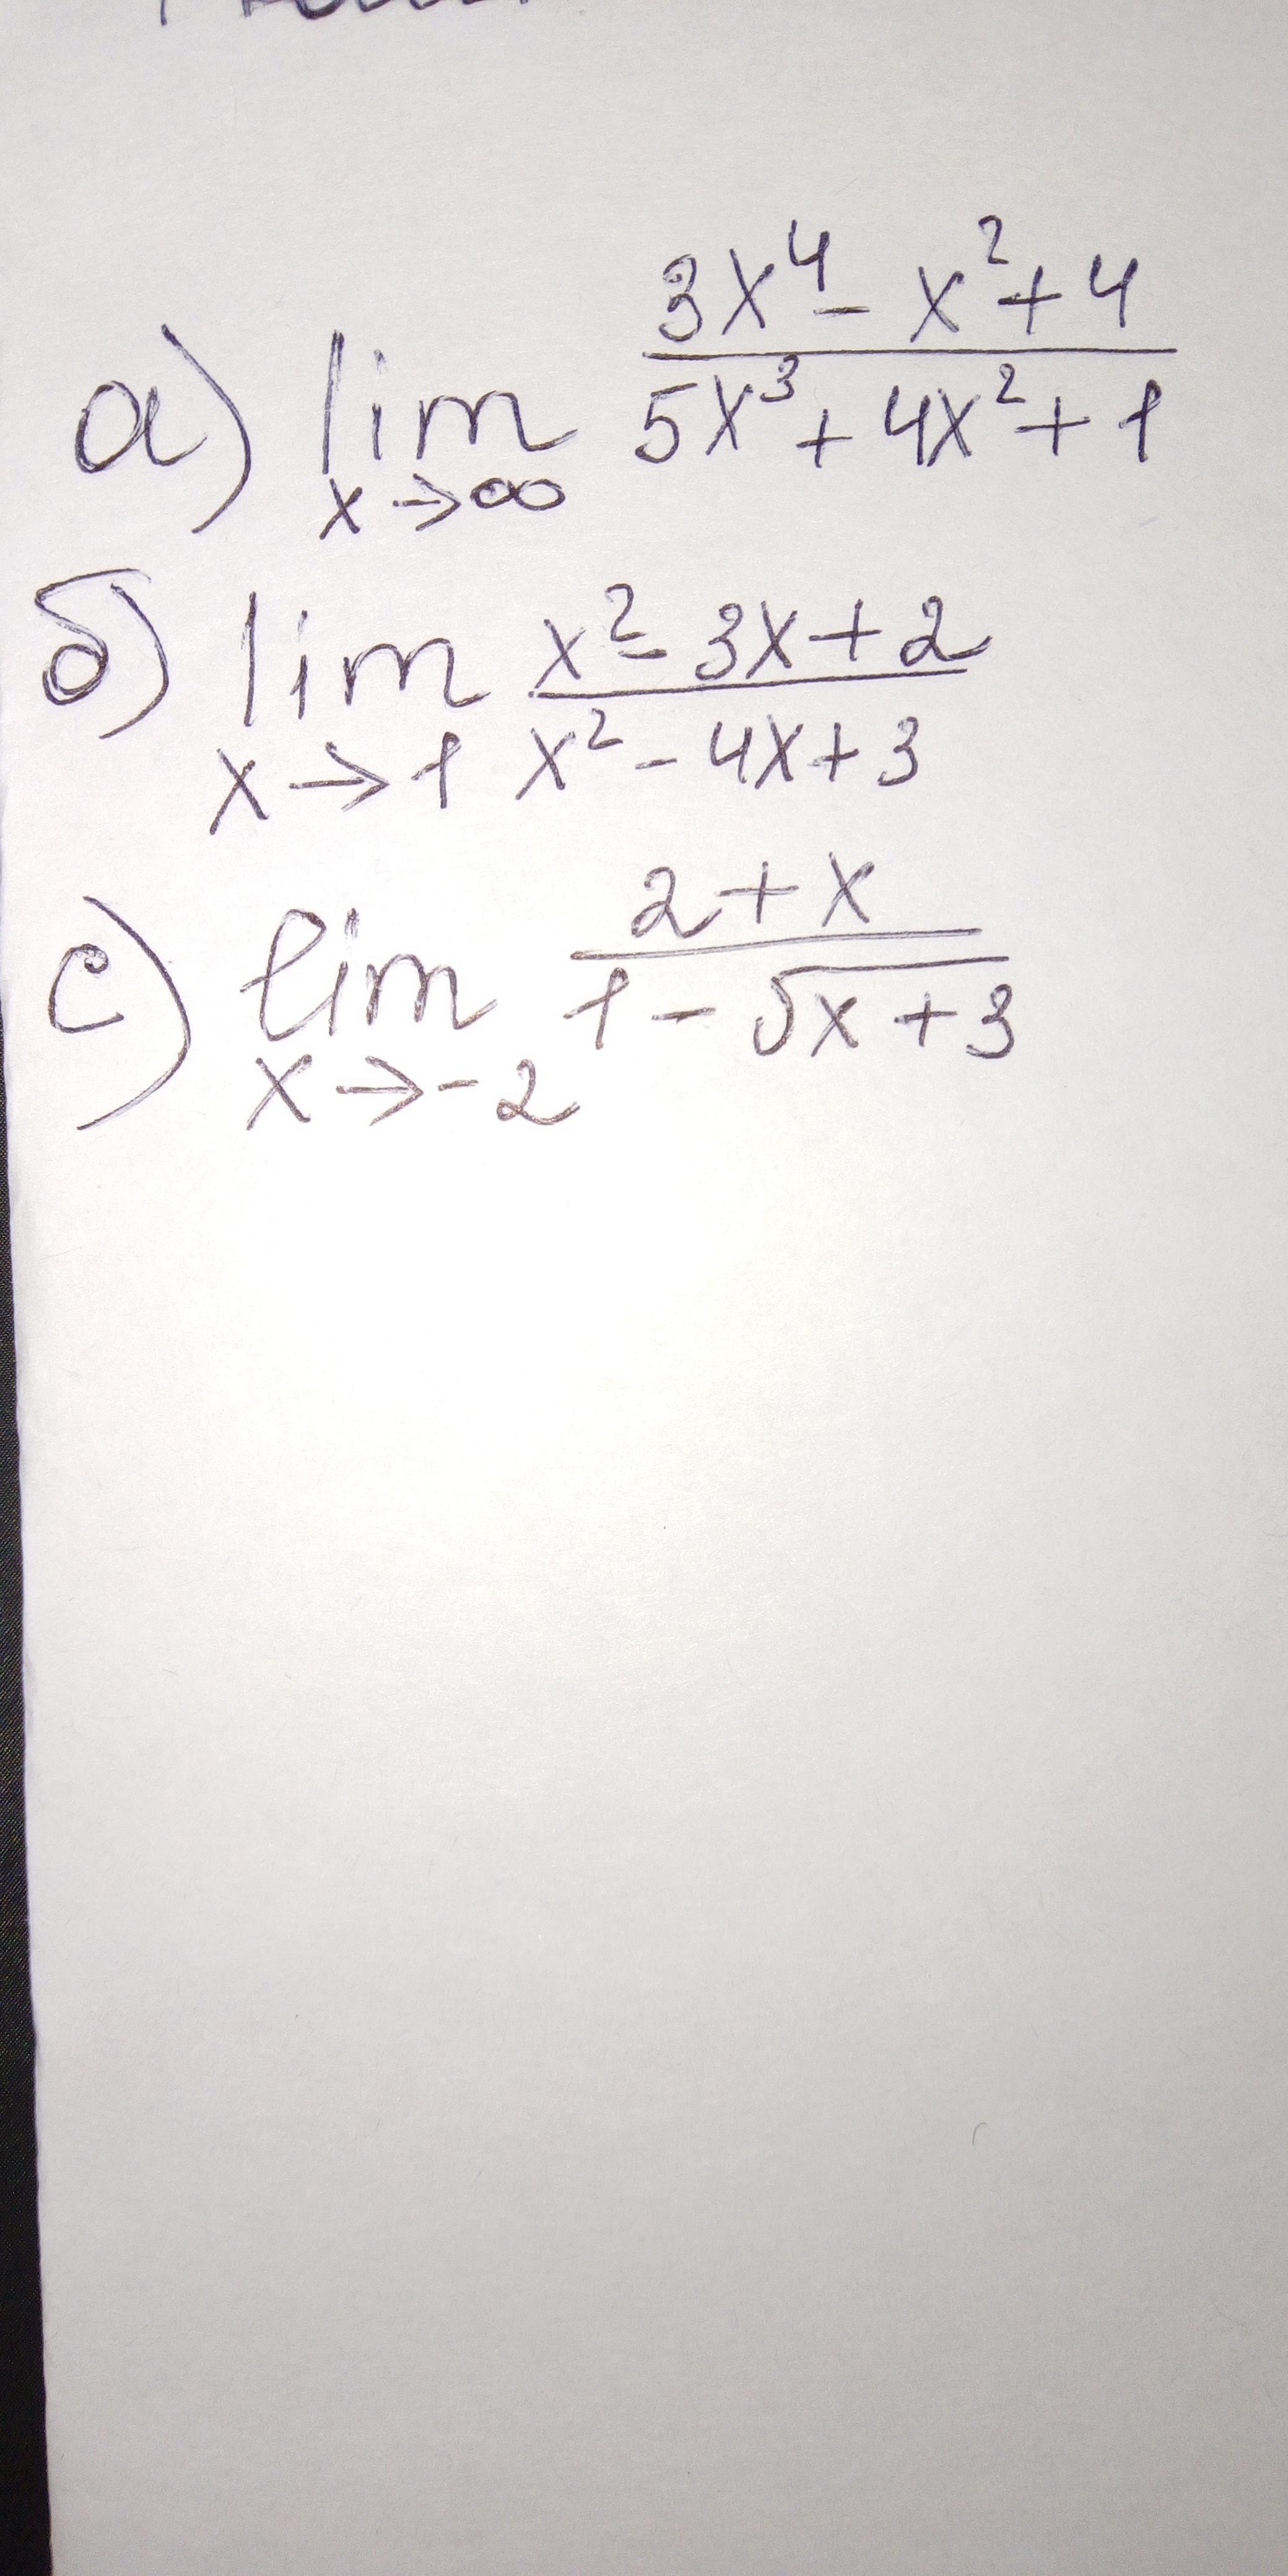 а) lim x→∞ (3x⁴ - x² + 4) / (5x³ + 4x² + 1)
б) lim x→1 (x² - 3x + 2) / (x² - 4x + 3)
с) lim x→-2 (2 + x) / (1 - √(x + 3))